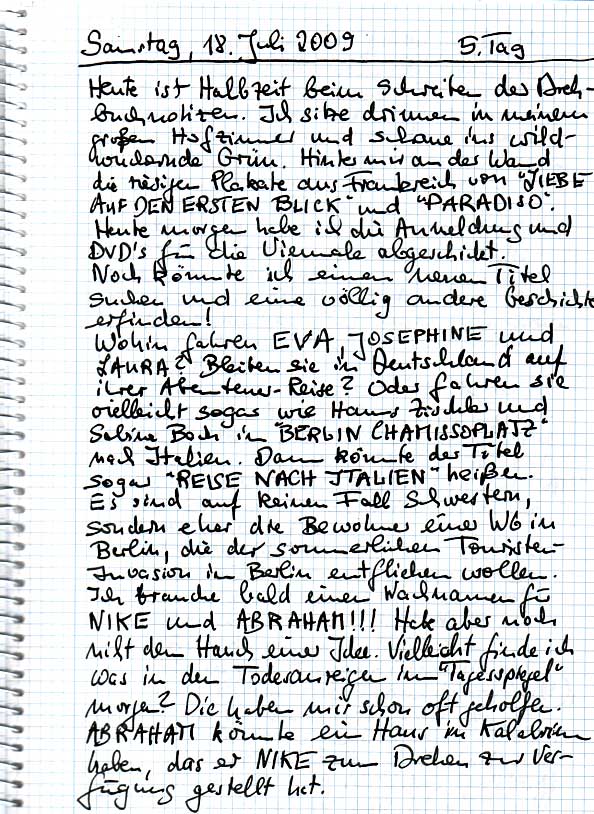 Samstag, 18. Juli 2009 5. Tag
Heute ist Halbzeit beim Schreiben der Dreh-
buchnotizen. Ich sitze drinnen in meinem
großen Hofzimmer und schaue ins wild-
wuchernde Grün. Hinter mir an der Wand
die riesigen Plakate aus Frankreich von "LIEBE
AUF DEN ERSTEN BLICK" und "PARADISO".
Heute morgen habe ich die Anmeldung und
DVD's für die Viennale abgeschickt.
Noch könnte ich einen neuen Titel
suchen und eine völlig andere Geschichte
erfinden!
Wohin fahren EVA, JOSEPHINE und
LAURA? Bleiben sie in Deutschland auf
ihrer Abenteuer-Reise? Oder fahren sie
vielleicht sogar wie Hanns Zischler und
Sabine Bach in "BERLIN CHAMISSOPLATZ"
nach Italien. Dann könnte der Titel
sogar "REISE NACH ITALIEN" heißen.
Es sind auf keinen Fall Schwestern,
sondern eher die Bewohner einer WG in
Berlin, die der sommerlichen Touristen-
Invasion in Berlin entfliehen wollen.
Ich brauche bald einen Nachnamen für
NIKE und ABRAHAM!!! Habe aber noch
nicht den Hauch einer Idee. Vielleicht finde ich
was in den Todesanzeigen im "Tagesspiegel"
morgen? Die haben mir schon oft geholfen.
ABRAHAM könnte ein Haus in Kalabrien
haben, das er NIKE zum Drehen zur Ver-
fügung gestellt hat.